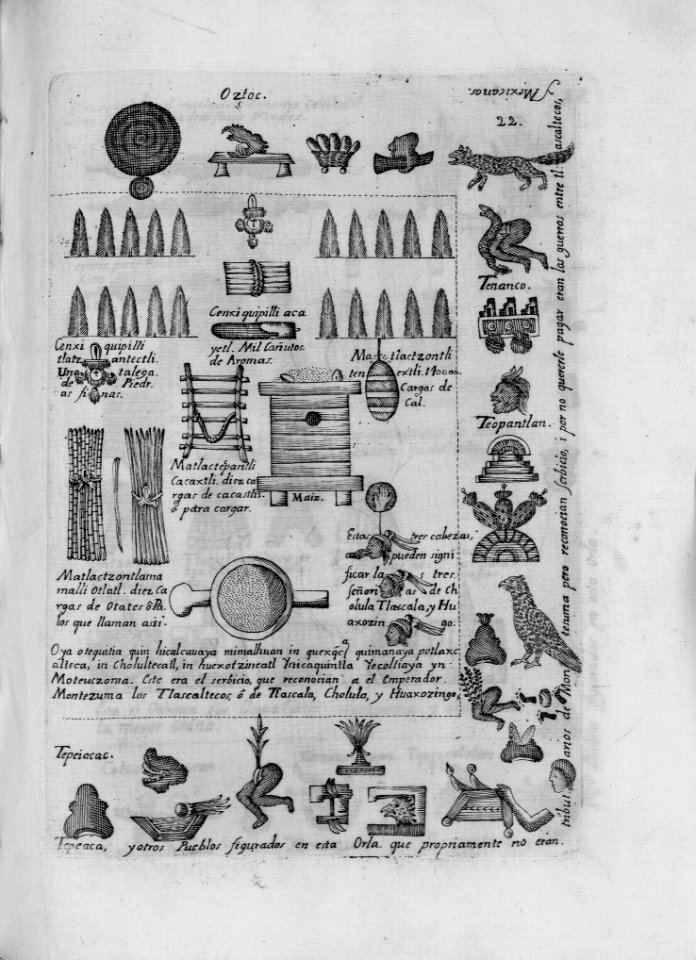 Oztoc.
y Mexicanos.
22.
Cenxiquipilli aca
yetl. Mil Cañutos
de Aromas.
Cenxi quipilli
tlatz antectli.
Una talega.
de Piedr.
as finas.
Ma tlactzontli
ten extli.
Cargas de
Cal.
Tenanco.
Teopantlan.
Matlactepantli
Cacaxtli. diez ca
rgas de cacastlis.
ô para cargar.
Maiz.
Matlactzontlama
malli Otlatl. diez Ca
rgas de Otates ô Pa.
los que llaman asii.
Estas tres cabezas,
pueden signi
ficar la s tres
señori as de Ch
olula Tlascala, y Hu
axozin go.
Oya otequitia quin hicalcauaya mimalhuan in quimanaya potlaxc
alteca, in Cholultecatl, in huexotzincatl Ynicaquintla Yecoltiaya yn
Moteuczoma. Este era el serbicio, que reconocian a el Emperador.
Montezuma los Tlascaltecos, ô de Tlascala, Cholula, y Huaxozingo,
Tepeiacac.
Tepeaca, y otros Pueblos figurados en esta Orla. que propriamente no eran.
tribut anos de Mon tesuma pero reconocian serbicio, i por no quererle pagar eran las guerras entre tl ascaltecos,